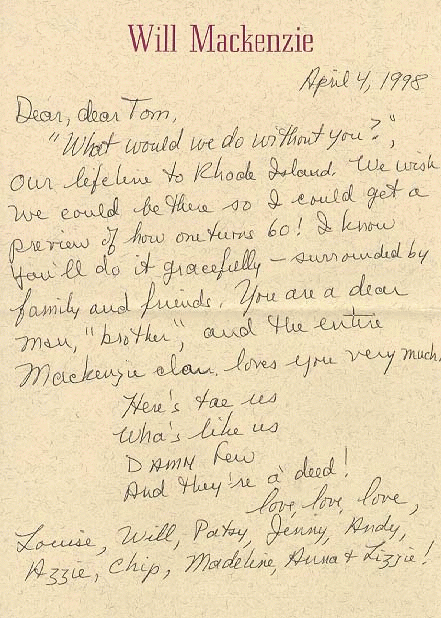 Will Mackenzie
April 4, 1998
Dear, dear Tom,
"What would we do without you?",
our lifeline to Rhode Island. We wish
we could be there so I could get a
preview of how one turns 60! I know
you'll do it gracefully – surrounded by
family and friends. You are a dear
man, "brother", and the entire
Mackenzie clan loves you very much.
Here's tae us
Wha's like us
DAMN Few
And they're a' deed!
love, love, love,
Louise, Will, Patsy, Jenny, Andy,
Azzie, Chip, Madeline, Anna & Lizzie!